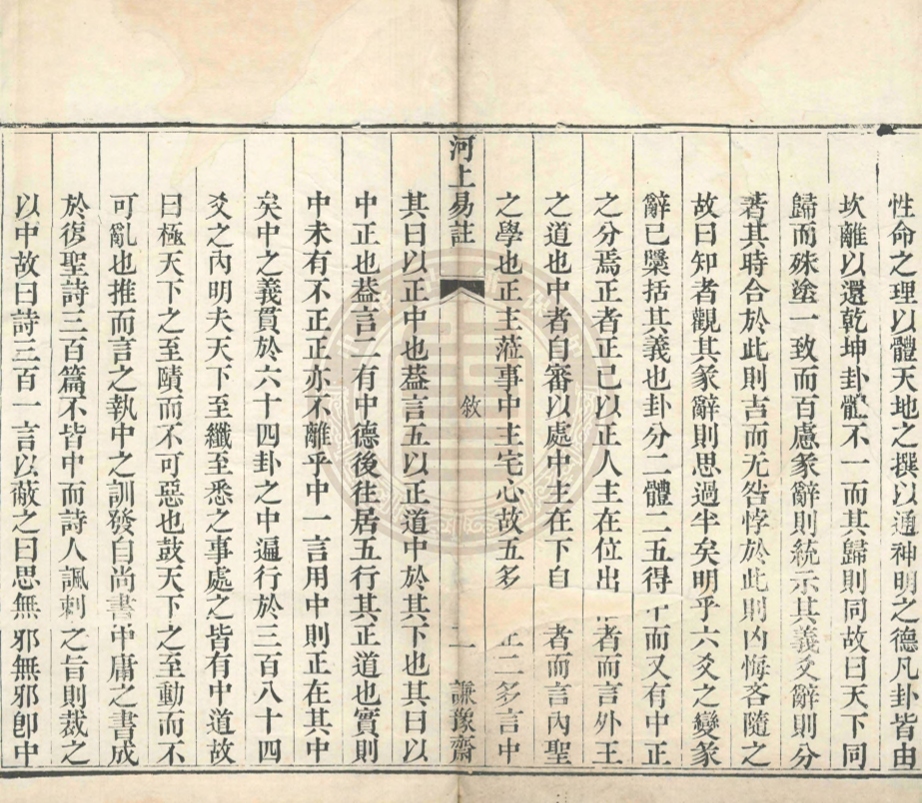 性命之理以體天地之撰以通神明之德凡卦皆由
坎離以還乾坤卦體不一而其歸則同故曰天下同
歸而殊塗一致而百慮彖辭則統示其義爻辭則分
著其時合於此則吉而无咎悖於此則凶悔吝隨之
故曰知者觀其彖辭則思過半矣明乎六爻之變彖
辭已檃括其義也卦分二體二五得中而又有中正
之分焉正者正己以正人主在位出者而言外王
之道也中者自審以處中主在下自者而言內聖
之學也正主蒞事中主宅心故五多正二多言中
河上易註
敘
二
謙豫齋
其曰以正中也葢言五以正道中於其下也其曰以
中正也葢言二有中德後往居五行其正道也實則
中未有不正正亦不離乎中一言用中則正在其中
矣中之義貫於六十四卦之中遍行於三百八十四
爻之內明夫天下至纖至悉之事處之皆有中道故
曰極天下之至賾而不可惡也鼓天下之至動而不
可亂也推而言之執中之訓發自尚書中庸之書成
於復聖詩三百篇不皆中而詩人諷刺之旨則裁之
以中故曰詩三百一言以蔽之曰思無邪無邪卽中